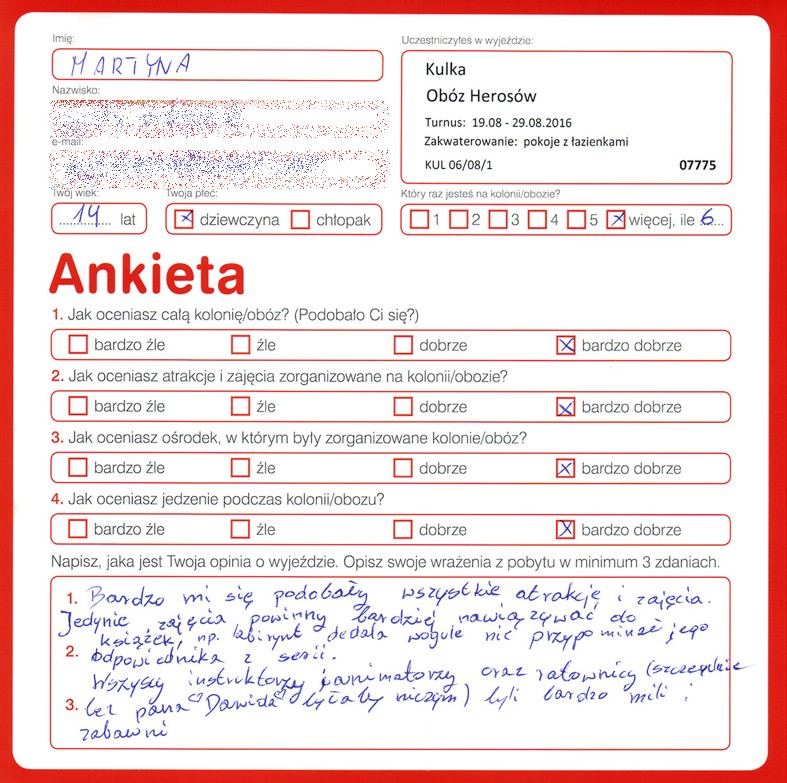 Imię:
MARTYNA
Nazwisko:
e-mail:
Twój wiek:
14 lat
Twoja płeć:
dziewczyna chłopak
Uczestniczyłeś w wyjeździe:
Kulka
Obóz Herosów
Turnus: 19.08 - 29.08.2016
Zakwaterowanie: pokoje z łazienkami
KUL 06/08/1 07775
Który raz jesteś na kolonii/obozie?
1 2 3 4 5 więcej, ile 6
Ankieta
1. Jak oceniasz całą kolonię/obóz? (Podobało Ci się?)
bardzo źle źle dobrze bardzo dobrze
2. Jak oceniasz atrakcje i zajęcia zorganizowane na kolonii/obozie?
bardzo źle źle dobrze bardzo dobrze
3. Jak oceniasz ośrodek, w którym były zorganizowane kolonie/obóz?
bardzo źle źle dobrze bardzo dobrze
4. Jak oceniasz jedzenie podczas kolonii/obozu?
bardzo źle źle dobrze bardzo dobrze
Napisz, jaka jest Twoja opinia o wyjeździe. Opisz swoje wrażenia z pobytu w minimum 3 zdaniach.
1. Bardzo mi się podobały wszystkie atrakcje i zajęcia.
Jedynie zajęcia powinny bardziej nawiązywać do
książek, np. labirynt dedala wogule nic przypominać jego
2. odpowiednika z serii.
Wszyscy instruktorzy i animatorzy oraz ratownicy (szczególnie
3. bez pana ♡Dawida♡ byłaby niczym) byli bardzo mili i
zabawni